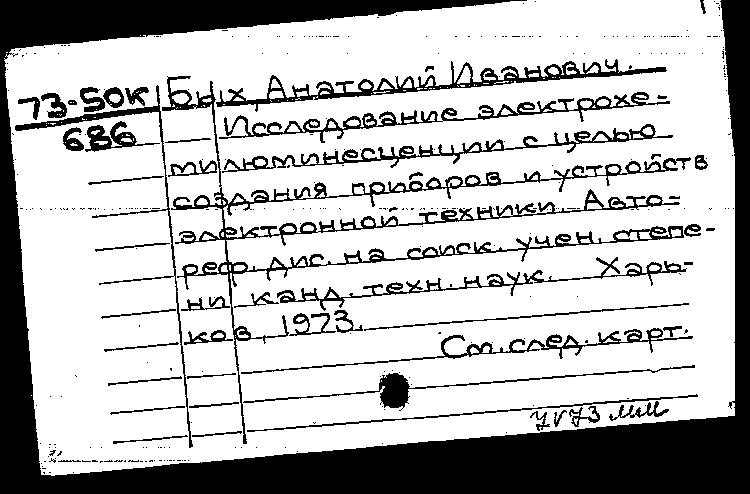 73-50К Бых, Анатолий Иванович.
686 Исследование электрохе-
милюминесценции с целью
создания приборов и устройств
электронной техники. Авто-
реф. дис. на соиск. учен. степе-
ни канд. техн. наук. Харь-
ков, 1973.
См. след. карт.